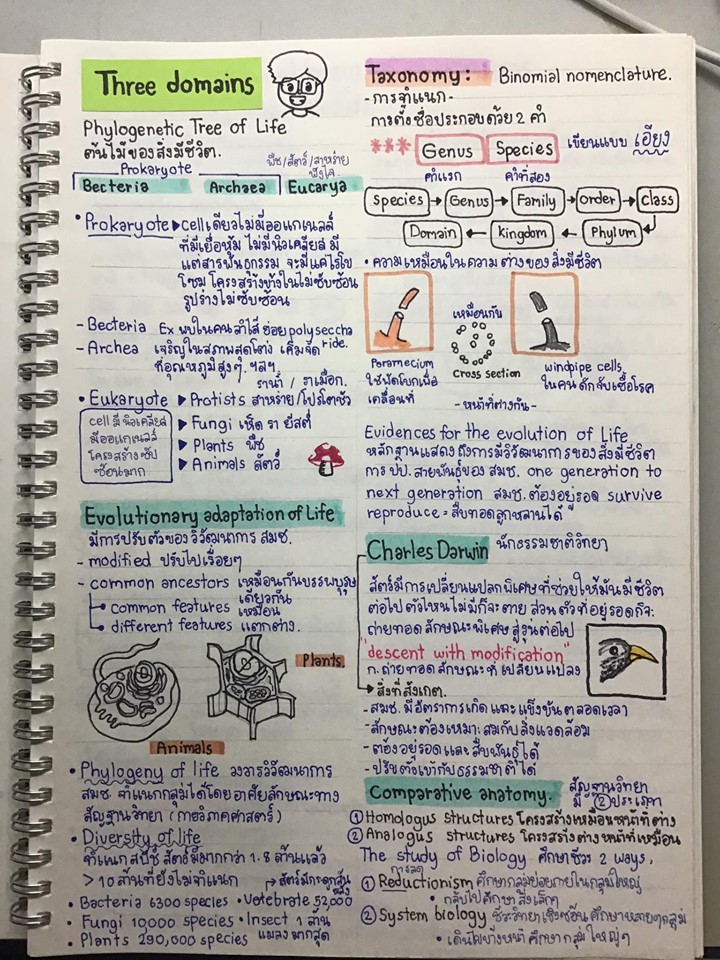 Three domains
Phylogenetic Tree of Life
ต้นไม้ของสิ่งมีชีวิต.
พืช/สัตว์/สาหร่าย
Prokaryote
Becteria Archaea Eucarya
• Prokaryote ▶ cell เดียวไม่มีออแกเนลล์
ที่มีเยื่อหุ้ม ไม่มีนิวเคลียส มี
แต่สารพันธุกรรม จะมีแค่โครโม
โซม โครงสร้างข้างในไม่ซับซ้อน
รูปร่างไม่ซับซ้อน
- Becteria Ex พบในคน ลำไส้ ย่อย polysaccha
ride.
- Archea เจริญในสภาพสุดโต่ง เค็มจัด
ที่อุณหภูมิสูงๆ. ฯลฯ
ราน้ำ / ราเมือก.
• Eukaryote ▶ Protists สาหร่าย/โปรโตซัว
cell มีนิวเคลียส
มีออแกเนลล์
โครงสร้างซับ
ซ้อนมาก
▶ Fungi เห็ด รา ยีสต์
▶ Plants พืช
▶ Animals สัตว์
Evolutionary adaptation of Life
มีการปรับตัวของวิวัฒนาการ สมช.
- modified ปรับไปเรื่อยๆ
- common ancestors เหมือนกันบรรพบุรุษ
เดียวกัน
common features เหมือน
different features แตกต่าง.
Plants.
Animals
• Phylogeny of life วงวารวิวัฒนาการ
สมช. จำแนกกลุ่มได้โดยอาศัยลักษณะทาง
สัญฐานวิทยา (กายวิภาคศาสตร์)
• Diversity of life
ที่แนก สปีชี่ สัตว์มีมากกว่า 1.8 ล้านแล้ว
> 10 ล้านที่ยังไม่จำแนก
สัตว์มีกระดูกสันหลัง
• Bacteria 6300 species • Vetebrate 52,000
• Fungi 10,000 species • Insect 1 ล้าน
• Plants 290,000 species แมลงมากสุด
Taxonomy: Binomial nomenclature.
- การจำแนก -
การตั้งชื่อประกอบด้วย 2 คำ
*** Genus Species เขียนแบบ เอียง
คำแรก คำที่สอง
Species → Genus → Family → Order → Class
Domain ← Kingdom ← Phylum
• ความเหมือนในความต่างของสิ่งมีชีวิต
เหมือนกัน
cross section
Paramecium
ใช้พัดโบกเพื่อ
เคลื่อนที่
windpipe cells
ในคนดักจับเชื้อโรค
- หน้าที่ต่างกัน -
Evidences for the evolution of Life
หลักฐานแสดงถึงการมีวิวัฒนาการของสิ่งมีชีวิต
การ ปป. สายพันธุ์ของ สมช. one generation to
next generation สมช. ต้องอยู่รอด survive
reproduce = สืบทอดลูกหลานได้
Charles Darwin นักธรรมชาติวิทยา
สัตว์มีการเปลี่ยนแปลกพิเศษที่ช่วยให้มันมีชีวิต
ต่อไป ตัวไหนไม่มีก็จะตาย ส่วนตัวที่อยู่รอดก็จะ
ถ่ายทอดลักษณะพิเศษ สู่รุ่นต่อไป
"descent with modification"
ก. ถ่ายทอดลักษณะที่เปลี่ยนแปลง
สิ่งที่สังเกต.
- สมช. มีอัตราการเกิดและแข็งขันตลอดเวลา
- ลักษณะต้องเหมาะสมกับสิ่งแวดล้อม
- ต้องอยู่รอดและสืบพันธุ์ได้
- ปรับตัวเข้ากับธรรมชาติได้
Comparative anatomy. สัญฐานวิทยา
มี ② ประเภท
① Homologus structures โครงสร้างเหมือนหน้าที่ต่าง
② Analogus structures โครงสร้างต่างหน้าที่เหมือน
The study of Biology ศึกษาชีวะ 2 ways,
การลด
① Reductionism ศึกษากลุ่มย่อยภายในกลุ่มใหญ่
• กลับไปศึกษาสิ่งเล็กๆ
② System biology ชีววิทยาเชิงซ้อน ศึกษาหลายๆกลุ่ม
• เดินไปข้างหน้า ศึกษากลุ่มใหญ่ๆ